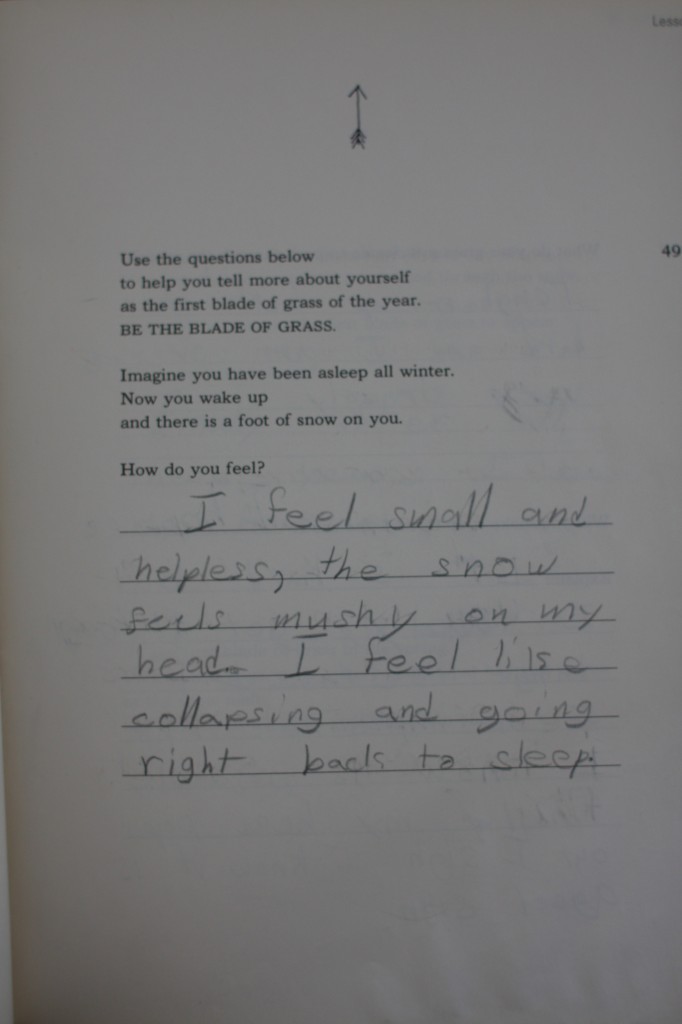 Less
49
Use the questions below
to help you tell more about yourself
as the first blade of grass of the year.
BE THE BLADE OF GRASS.
Imagine you have been asleep all winter.
Now you wake up
and there is a foot of snow on you.
How do you feel?
I feel small and
helpless, the snow
feels mushy on my
head. I feel like
collapsing and going
right back to sleep.